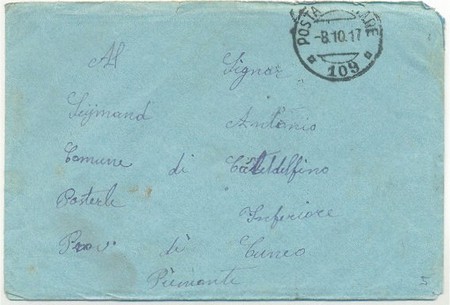 POSTA MILITARE
-8.10.17
109
Al Signor
Seymand Antonio
Comune di Casteldelfino
Posterle Inferiore
Prov di Cuneo
Piemonte
5